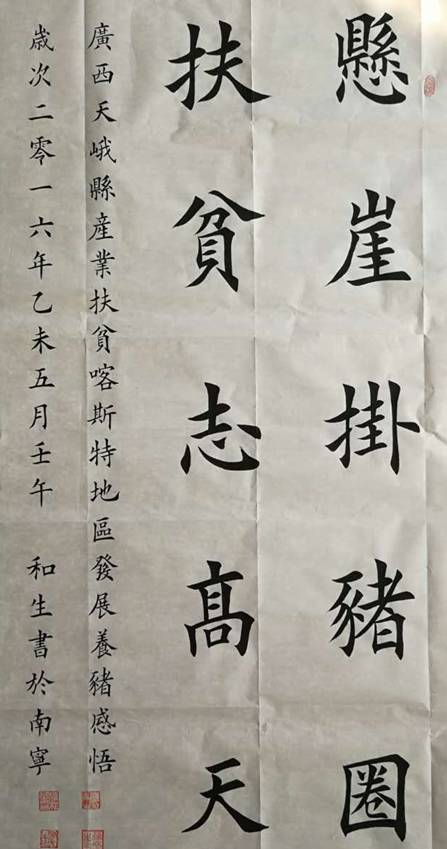 懸崖掛豬圈
扶貧志高天
廣西天峨縣産業扶貧喀斯特地區發展養豬感悟
歲次二零一六年乙未五月壬午 和生書於南寧